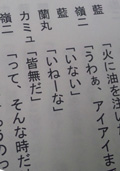 藍「火に油を注い
嶺二「うわぁ、アイアイま
藍「いない」
蘭丸「いねーな」
カミュ「皆無だ」
嶺二「って、そんな時だ